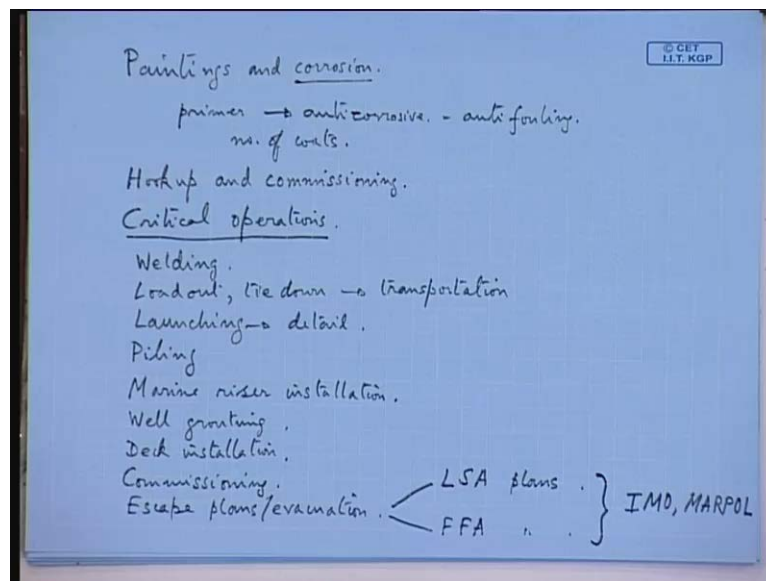 © CET
I.I.T. KGP
Paintings and corrosion.
primer → anticorrosive. - antifouling.
no. of coats.
Hookup and commissioning.
Critical operations.
Welding.
Loadout, tie down → transportation
Launching → detail.
Piling
Marine riser installation.
Well grouting.
Deck installation.
Commissioning.
Escape plans/evacuation. LSA plans. IMO, MARPOL
FFA " .